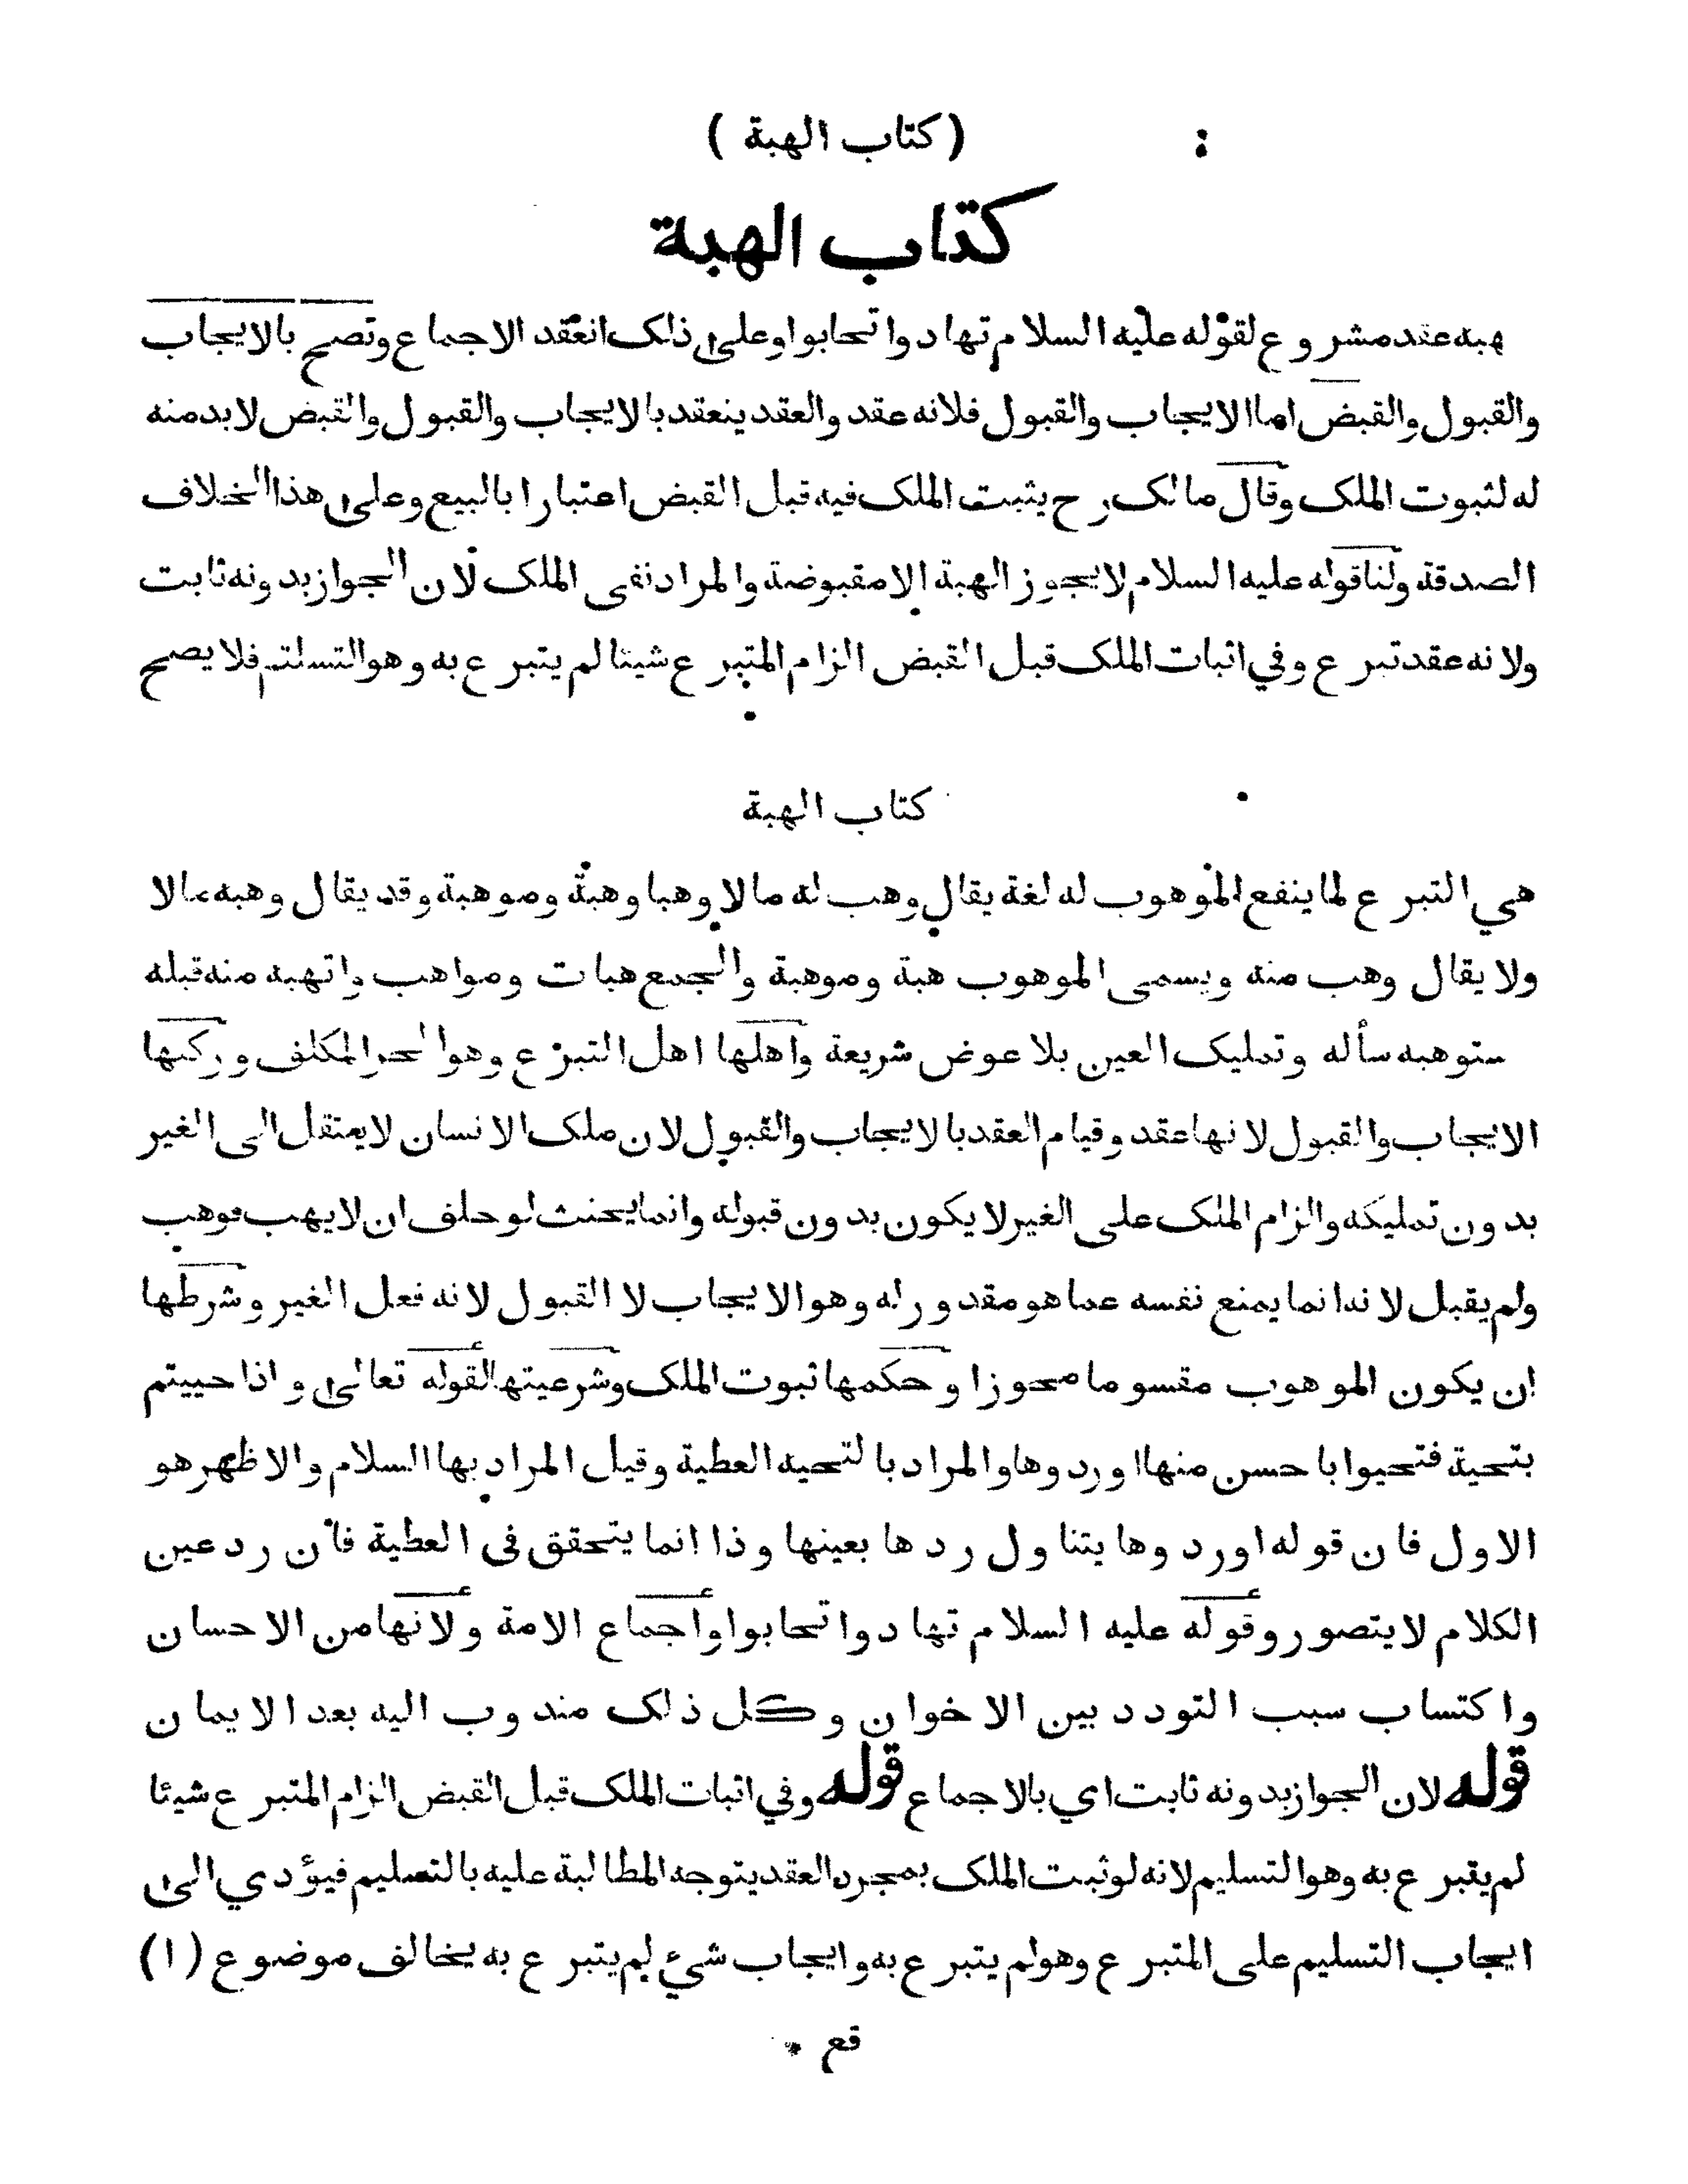 ( كتاب الهبة )
كتاب الهبة
هبه عقد مشروع لقوله عليه السلام تهادوا تحابوا وعلى ذلك انعقد الاجماع وتصح بالايجاب
والقبول والقبض اما الايجاب والقبول فلانه عقد والعقد ينعقد بالايجاب والقبول والقبض لابد منه
له لثبوت الملك وقال مالك رح يثبت الملك فيه قبل القبض اعتبارا بالبيع وعلى هذا الخلاف
الصدقة ولنا قوله عليه السلام لايجوز الهبة الا مقبوضة والمراد نفى الملك لان الجواز بدونه ثابت
ولانه عقد تبرع وفي اثبات الملك قبل القبض الزام المتبرع شيئا لم يتبرع به وهو التسلم فلا يصح
كتاب الهبة
هي التبرع لما ينفع الموهوب له لغة يقال وهب له مالا وهبا وهبة وموهبة وقد يقال وهبه مالا
ولا يقال وهب منه ويسمى الموهوب هبة وموهبة والجمع هبات ومواهب واتهبه منه قبله
ستوهبه سأله وتمليك العين بلا عوض شريعة واهلها اهل التبرع وهو الحر المكلف وركنها
الايجاب والقبول لانها عقد وقيام العقد بالايجاب والقبول لان ملك الانسان لاينتقل الى الغير
بدون تمليكه والزام الملك على الغير لايكون بدون قبوله وانما يحنث لو حلف ان لايهب فوهب
ولم يقبل لانه انما يمنع نفسه عما هو مقدور له وهو الايجاب لا القبول لانه فعل الغير وشرطها
ان يكون الموهوب مقسوما محوزا وحكمها ثبوت الملك وشرعيتها لقوله تعالى واذا حييتم
بتحية فتحيوا باحسن منها اوردوها والمراد بالتحيه العطية وقيل المراد بها السلام والاظهر هو
الاول فان قوله اوردوها يتناول ردها بعينها وذا انما يتحقق فى العطية فان رد عين
الكلام لايتصور وقوله عليه السلام تهادوا تحابوا واجماع الامة ولانها من الاحسان
واكتساب سبب التودد بين الاخوان وكل ذلك مندوب اليه بعد الايمان
قوله لان الجواز بدونه ثابت اي بالاجماع قوله وفي اثبات الملك قبل القبض الزام المتبرع شيئا
لم يتبرع به وهو التسليم لانه لو ثبت الملك بمجرد العقد يتوجه المطالبة عليه بالتسليم فيؤدي الى
ايجاب التسليم على المتبرع وهو لم يتبرع به وايجاب شئ لم يتبرع به يخالف موضوع (١)
قع